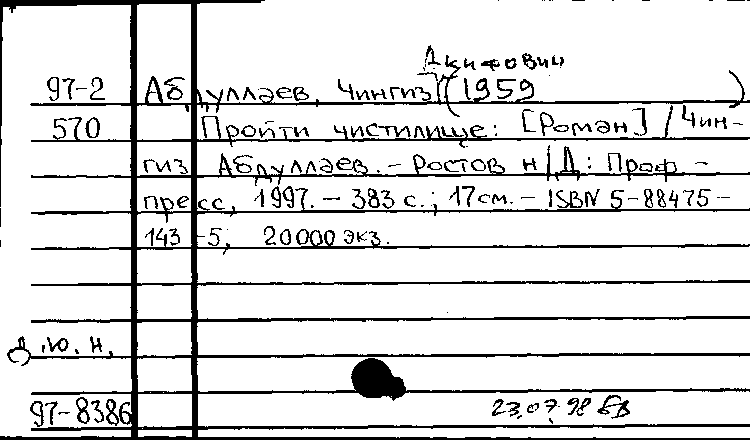 Акифович
97-2 Абдуллаев, Чингиз (1959 )
570 Пройти чистилище: [Роман] / Чин-
гиз Абдуллаев. – Ростов н/Д: Проф-
пресс, 1997. – 383 с.; 17 см. – ISBN 5-88475-
143-5, 20000 экз.
Ю. Н.
97-8386 23.07.98